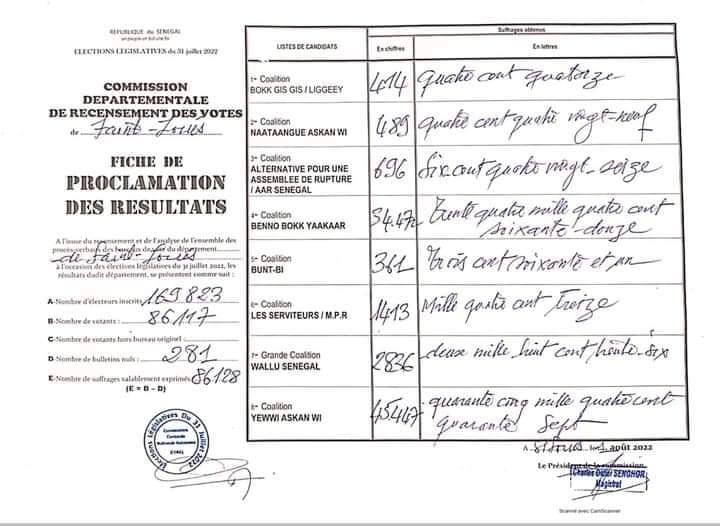 REPUBLIQUE du SENEGAL
un peuple un but une foi
ELECTIONS LEGISLATIVES du 31 juillet 2022
COMMISSION
DEPARTEMENTALE
DE RECENSEMENT DES VOTES
de Saint-Louis
FICHE DE
PROCLAMATION
DES RESULTATS
A l'issue du recensement et de l'analyse de l'ensemble des
procès-verbaux des bureaux de vote du département
de Saint-Louis
à l'occasion des élections législatives du 31 juillet 2022, les
résultats dudit département, se présentent comme suit :
A-Nombre d'électeurs inscrits 169823
B-Nombre de votants : 86117
C-Nombre de votants hors bureau originel :
D-Nombre de bulletins nuls : 281
E-Nombre de suffrages valablement exprimés 86128
(E = B – D)
Elections Législatives Du 31 Juillet 2022
Commission
Nationale
Autonome
LISTES DE CANDIDATS
Suffrages obtenus
En chiffres
En lettres
1re Coalition
BOKK GIS GIS / LIGGEEY
414
quatre cent quatorze
2e Coalition
NAATAANGUE ASKAN WI
489
quatre cent quatre vingt-neuf
3e Coalition
ALTERNATIVE POUR UNE
ASSEMBLEE DE RUPTURE
/ AAR SENEGAL
696
Six cent quatre vingt-seize
4e Coalition
BENNO BOKK YAAKAAR
34.472
Trente quatre mille quatre cent
soixante-douze
5e Coalition
BUNT-BI
361
Trois cent soixante et un
6e Coalition
LES SERVITEURS / M.P.R
1413
Mille quatre cent treize
7e Grande Coalition
WALLU SENEGAL
2836
deux mille huit cent trente-six
8e Coalition
YEWWI ASKAN WI
45.447
quarante cinq mille quatre cent
quarante sept
A St Louis le 1 août 2022
Le Président de la commission
Charles Didier SENGHOR
Magistrat
Scanné avec CamScanner